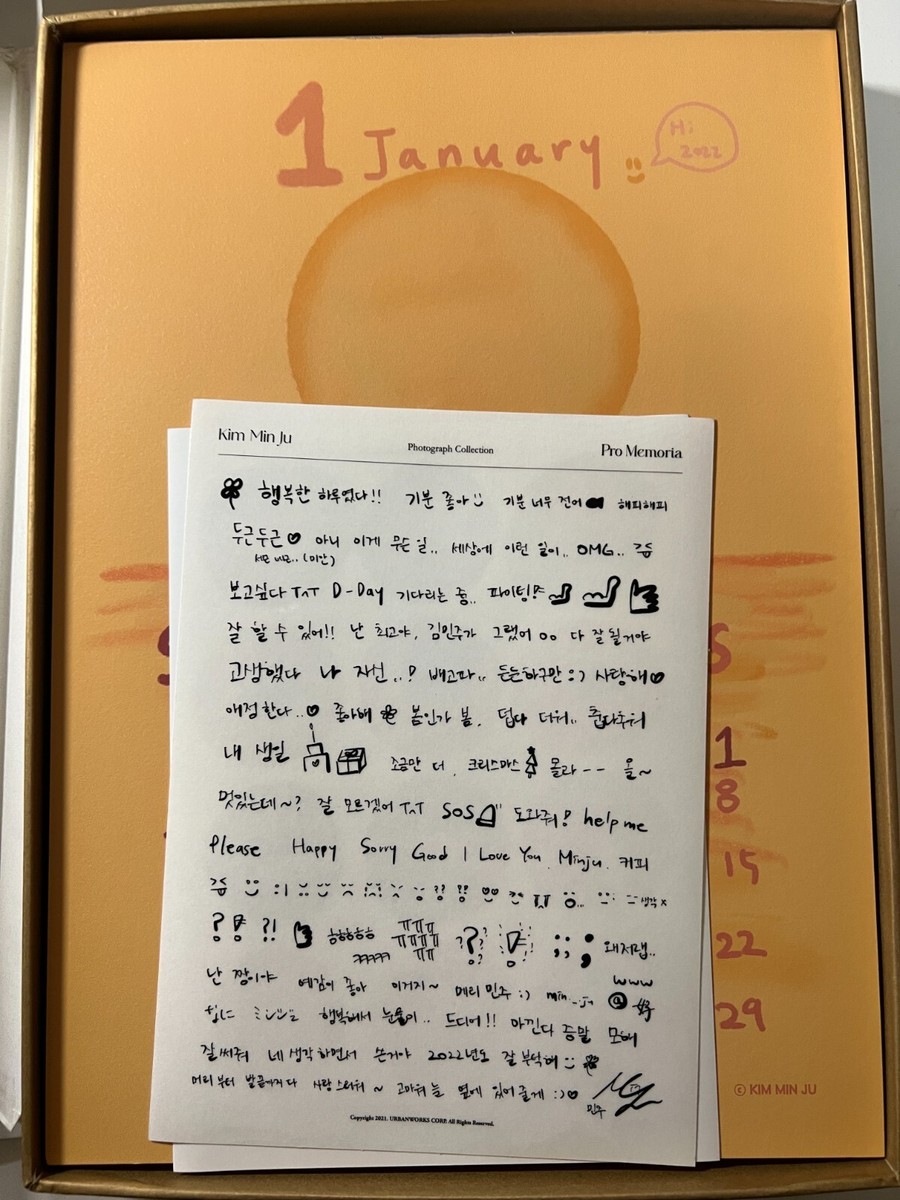 1 January
Hi
2022
Kim Min Ju
Photograph Collection
Pro Memoria
행복한 하루였다!! 기분 좋아 기분 너무 해피해피
두근두근♡ 아니 이게 무슨 일.. 세상에 이런 일이.. OMG..
(미안)
보고싶다 TnT D-Day 기다리는 중.. 파이팅!
잘 할 수 있어!! 난 최고야, 김민주가 그랬어 ㅇㅇ 다 잘 될거야
고생했다 나 자신..! 배고파.. 든든하구만 :) 사랑해♡
애정한다..♡ 좋아해 봄인가 봄. 덥다 더워.. 춥다추워
내 생일 조금만 더. 크리스마스 몰라-- 올~
멋있는데~? 잘 모르겠어 TnT SOS 도와줘! help me
Please Happy Sorry Good I Love You. Minju. 커피
생각x
? ! ?! ㅎㅎㅎㅎㅎ ㅠㅠㅠ ? ! ; ; ; 왜저랩..
ㅠㅠㅠㅠ
ㅋㅋㅋㅋㅋ ㅠㅠ
난 짱이야 예감이 좋아 이거지~ 메리 민주 :) www
@ 好
행복해서 눈물이.. 드디어!! 아낀다 증말 모해
잘써줘 네 생각하면서 쓴거야 2022년도 잘 부탁해
머리부터 발끝까지 다 사랑스러워~ 고마워 늘 옆에 있어줄게 :)♡
민주
Copyright 2021. URBANWORKS CORP. All Rights Reserved.
S
1
8
15
22
29
© KIM MIN JU